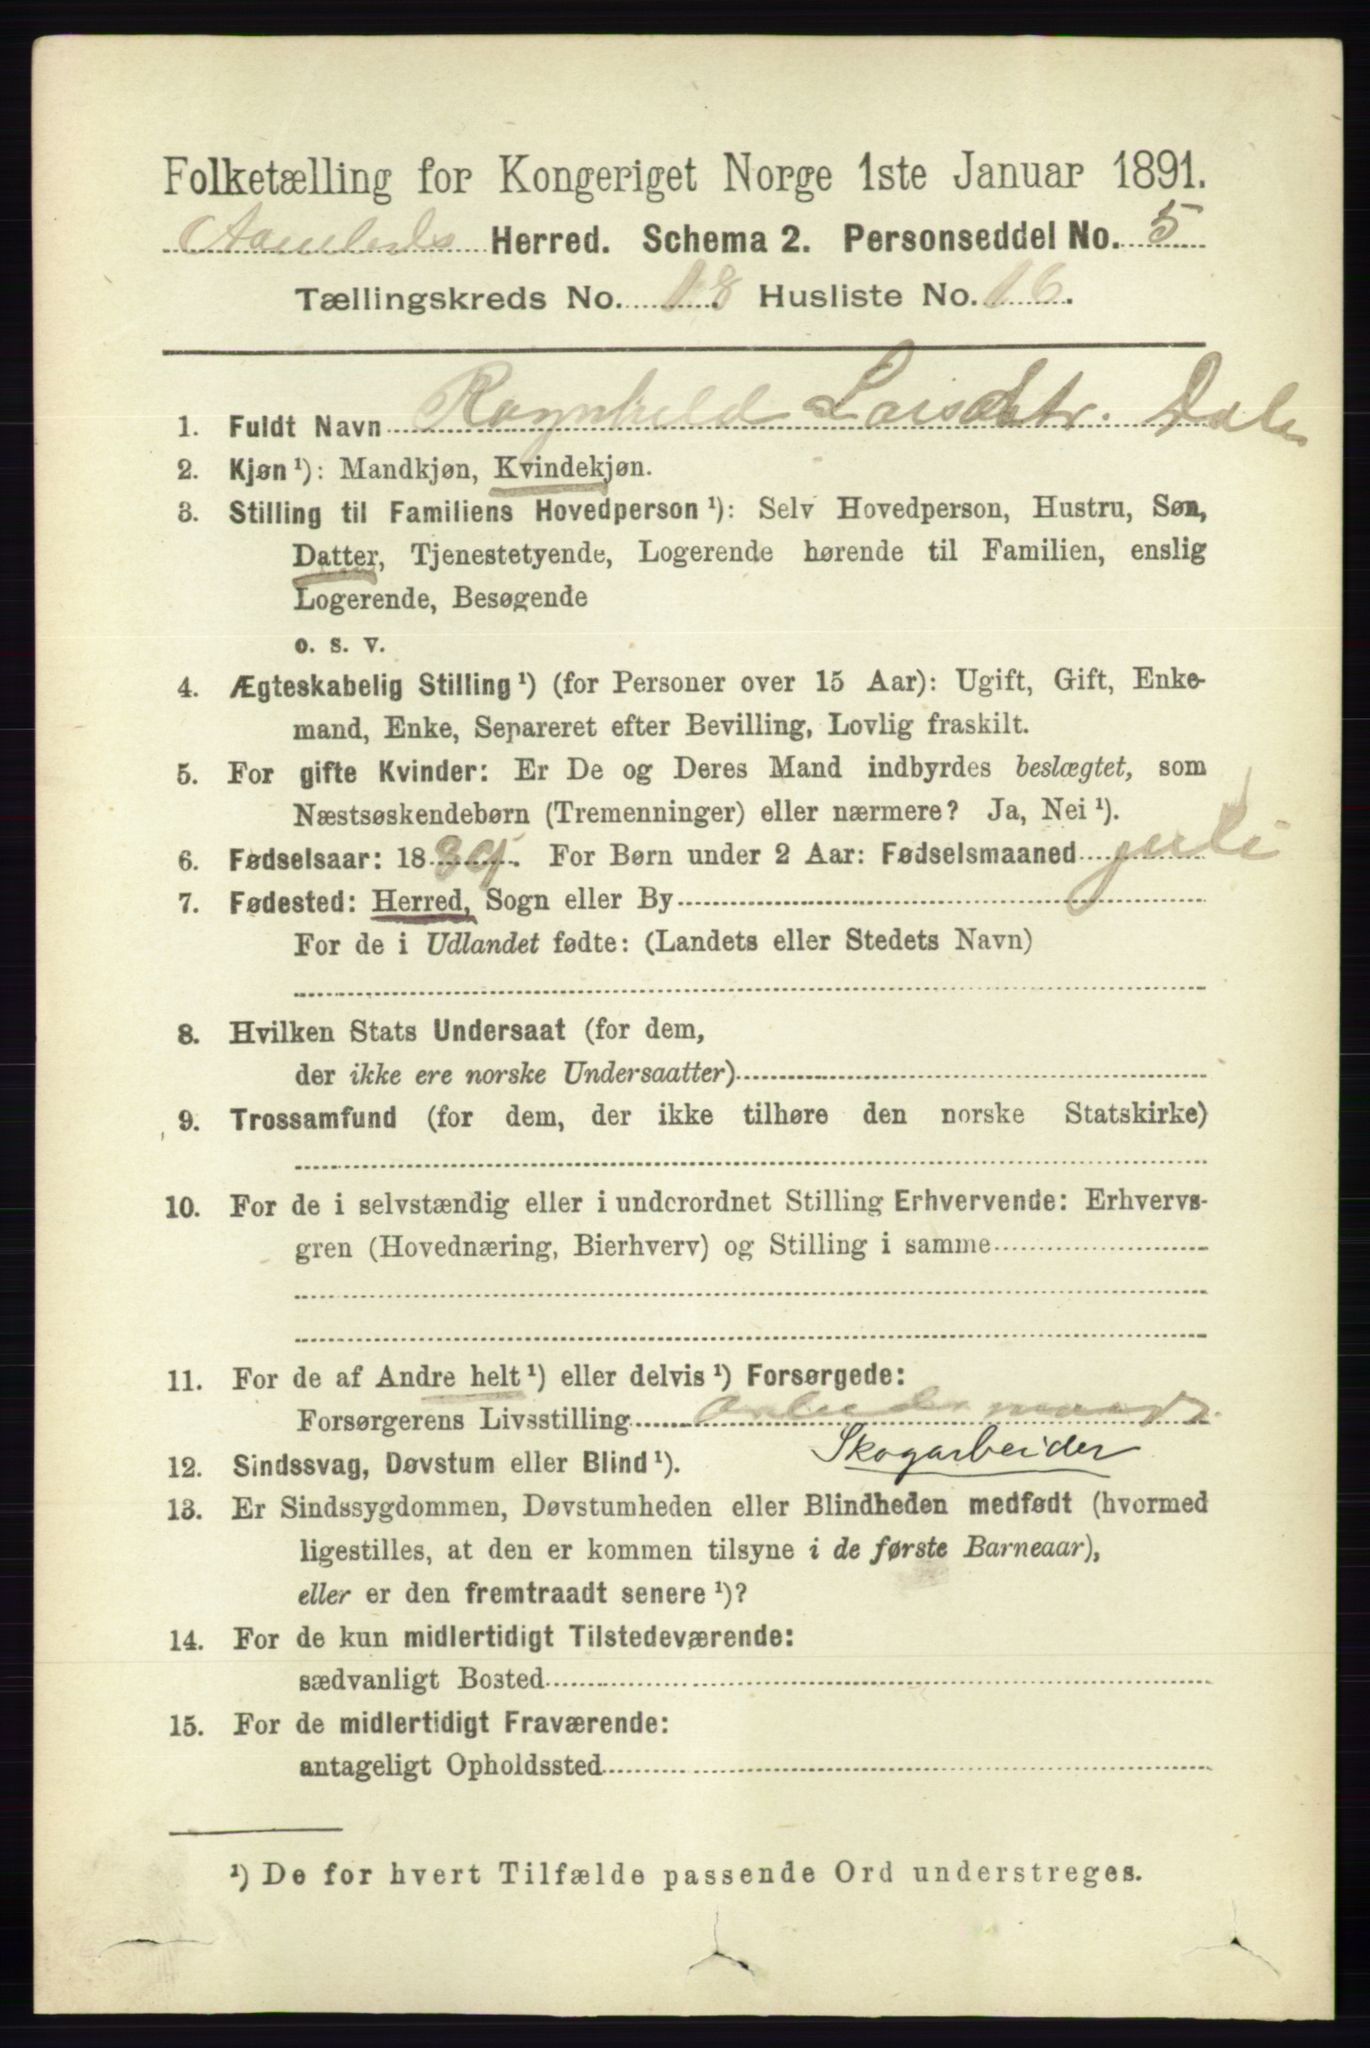 Folketælling for Kongeriget Norge 1ste Januar 1891.
Herred. Schema 2. Personseddel No. 5
Tællingskreds No. 18 Husliste No. 16.
1. Fuldt Navn Ragnhild Larsdtr. Dalen
2. Kjøn ¹): Mandkjøn, Kvindekjøn.
3. Stilling til Familiens Hovedperson ¹): Selv Hovedperson, Hustru, Søn,
Datter, Tjenestetyende, Logerende hørende til Familien, enslig
Logerende, Besøgende
o. s. v.
4. Ægteskabelig Stilling ¹) (for Personer over 15 Aar): Ugift, Gift, Enke-
mand, Enke, Separeret efter Bevilling, Lovlig fraskilt.
5. For gifte Kvinder: Er De og Deres Mand indbyrdes beslægtet, som
Næstsøskendebørn (Tremenninger) eller nærmere? Ja, Nei ¹).
6. Fødselsaar: 1889. For Børn under 2 Aar: Fødselsmaaned juli
7. Fødested: Herred, Sogn eller By
For de i Udlandet fødte: (Landets eller Stedets Navn)
8. Hvilken Stats Undersaat (for dem,
der ikke ere norske Undersaatter)
9. Trossamfund (for dem, der ikke tilhøre den norske Statskirke)
10. For de i selvstændig eller i underordnet Stilling Erhvervende: Erhvervs-
gren (Hovednæring, Bierhverv) og Stilling i samme
11. For de af Andre helt ¹) eller delvis ¹) Forsørgede:
Forsørgerens Livsstilling
Skogarbeider
12. Sindssvag, Døvstum eller Blind ¹).
13. Er Sindssygdommen, Døvstumheden eller Blindheden medfødt (hvormed
ligestilles, at den er kommen tilsyne i de første Barneaar),
eller er den fremtraadt senere ¹)?
14. For de kun midlertidigt Tilstedeværende:
sædvanligt Bosted
15. For de midlertidigt Fraværende:
antageligt Opholdssted
¹) De for hvert Tilfælde passende Ord understreges.